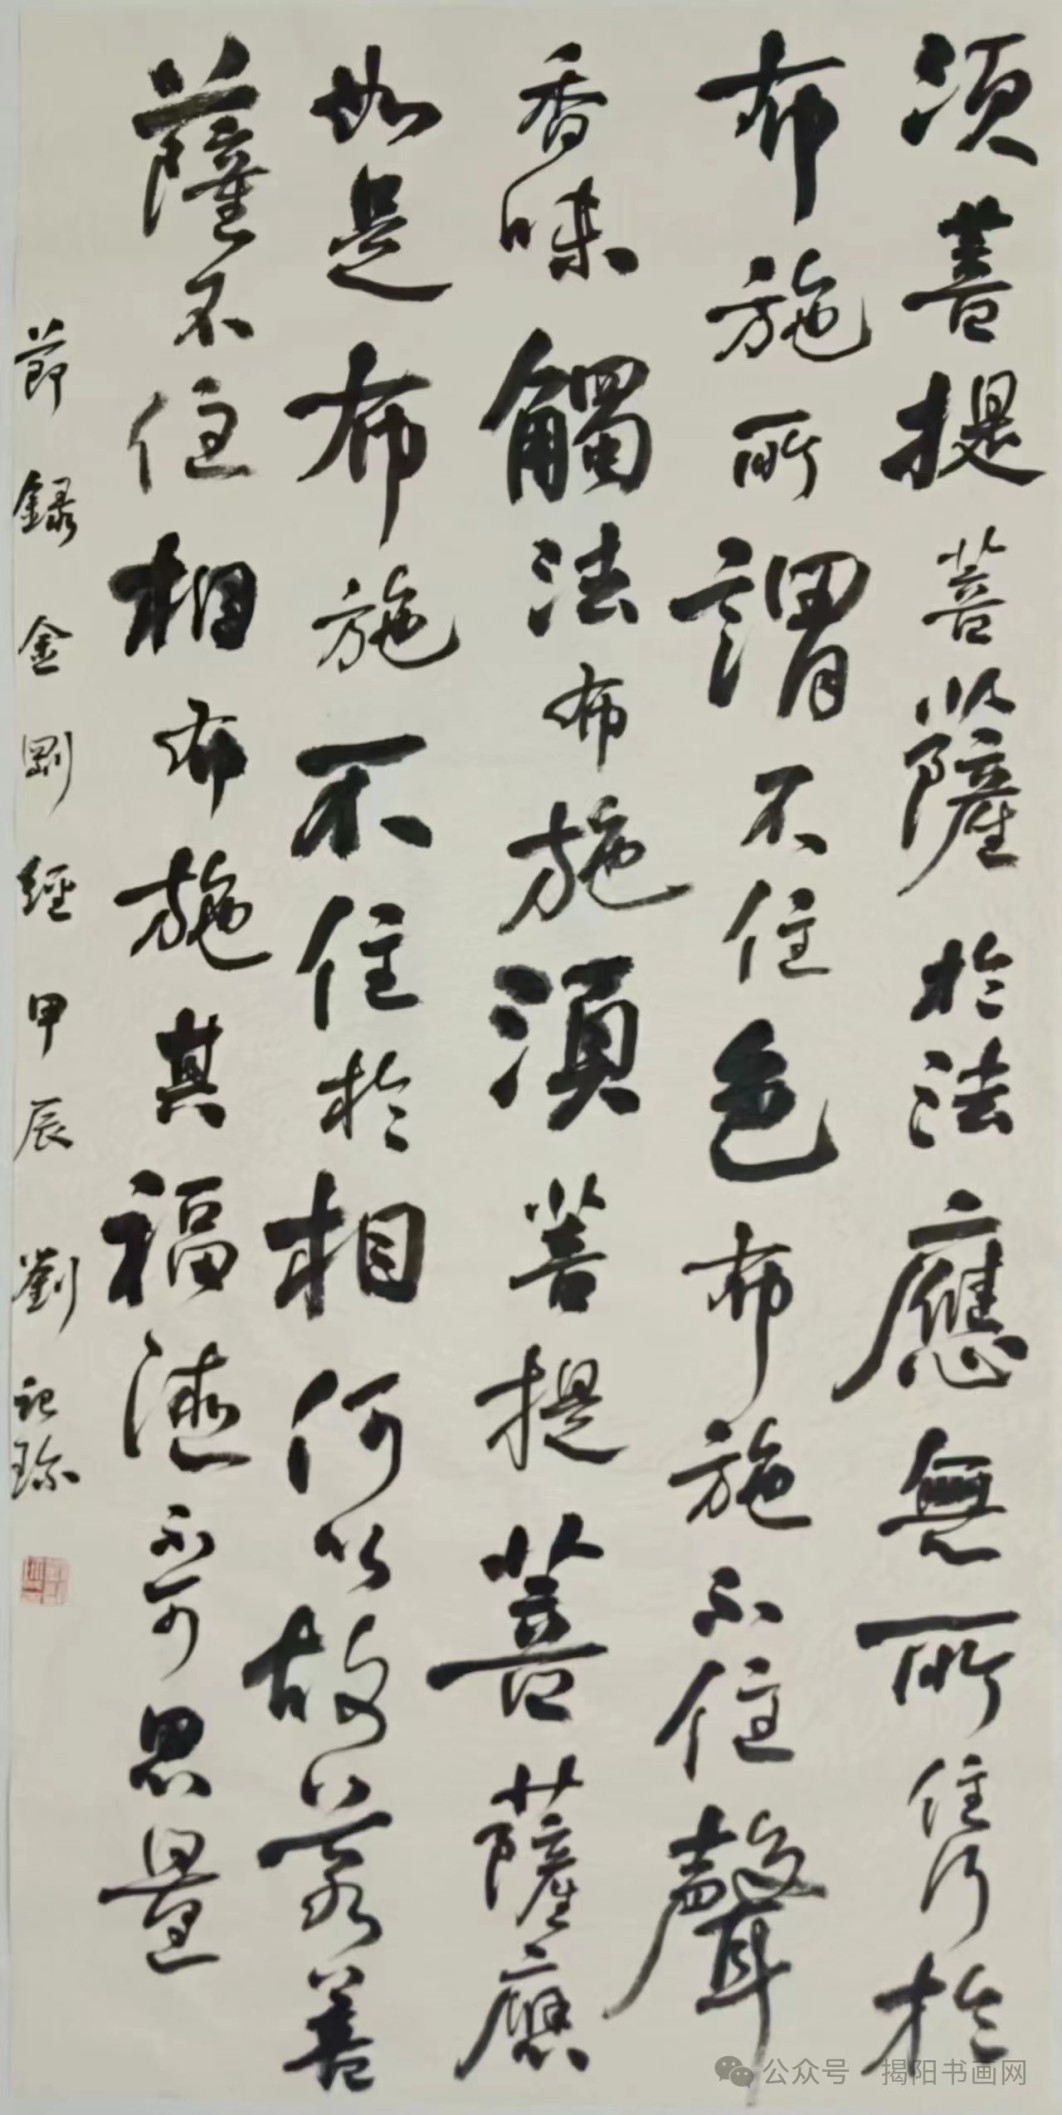 須菩提菩薩於法應無所住行於
布施所謂不住色布施不住聲
香味觸法布施須菩提菩薩應
如是布施不住於相何以故若菩
薩不住相布施其福德不可思量
節録金剛經甲辰劉
公众号 揭阳书画网